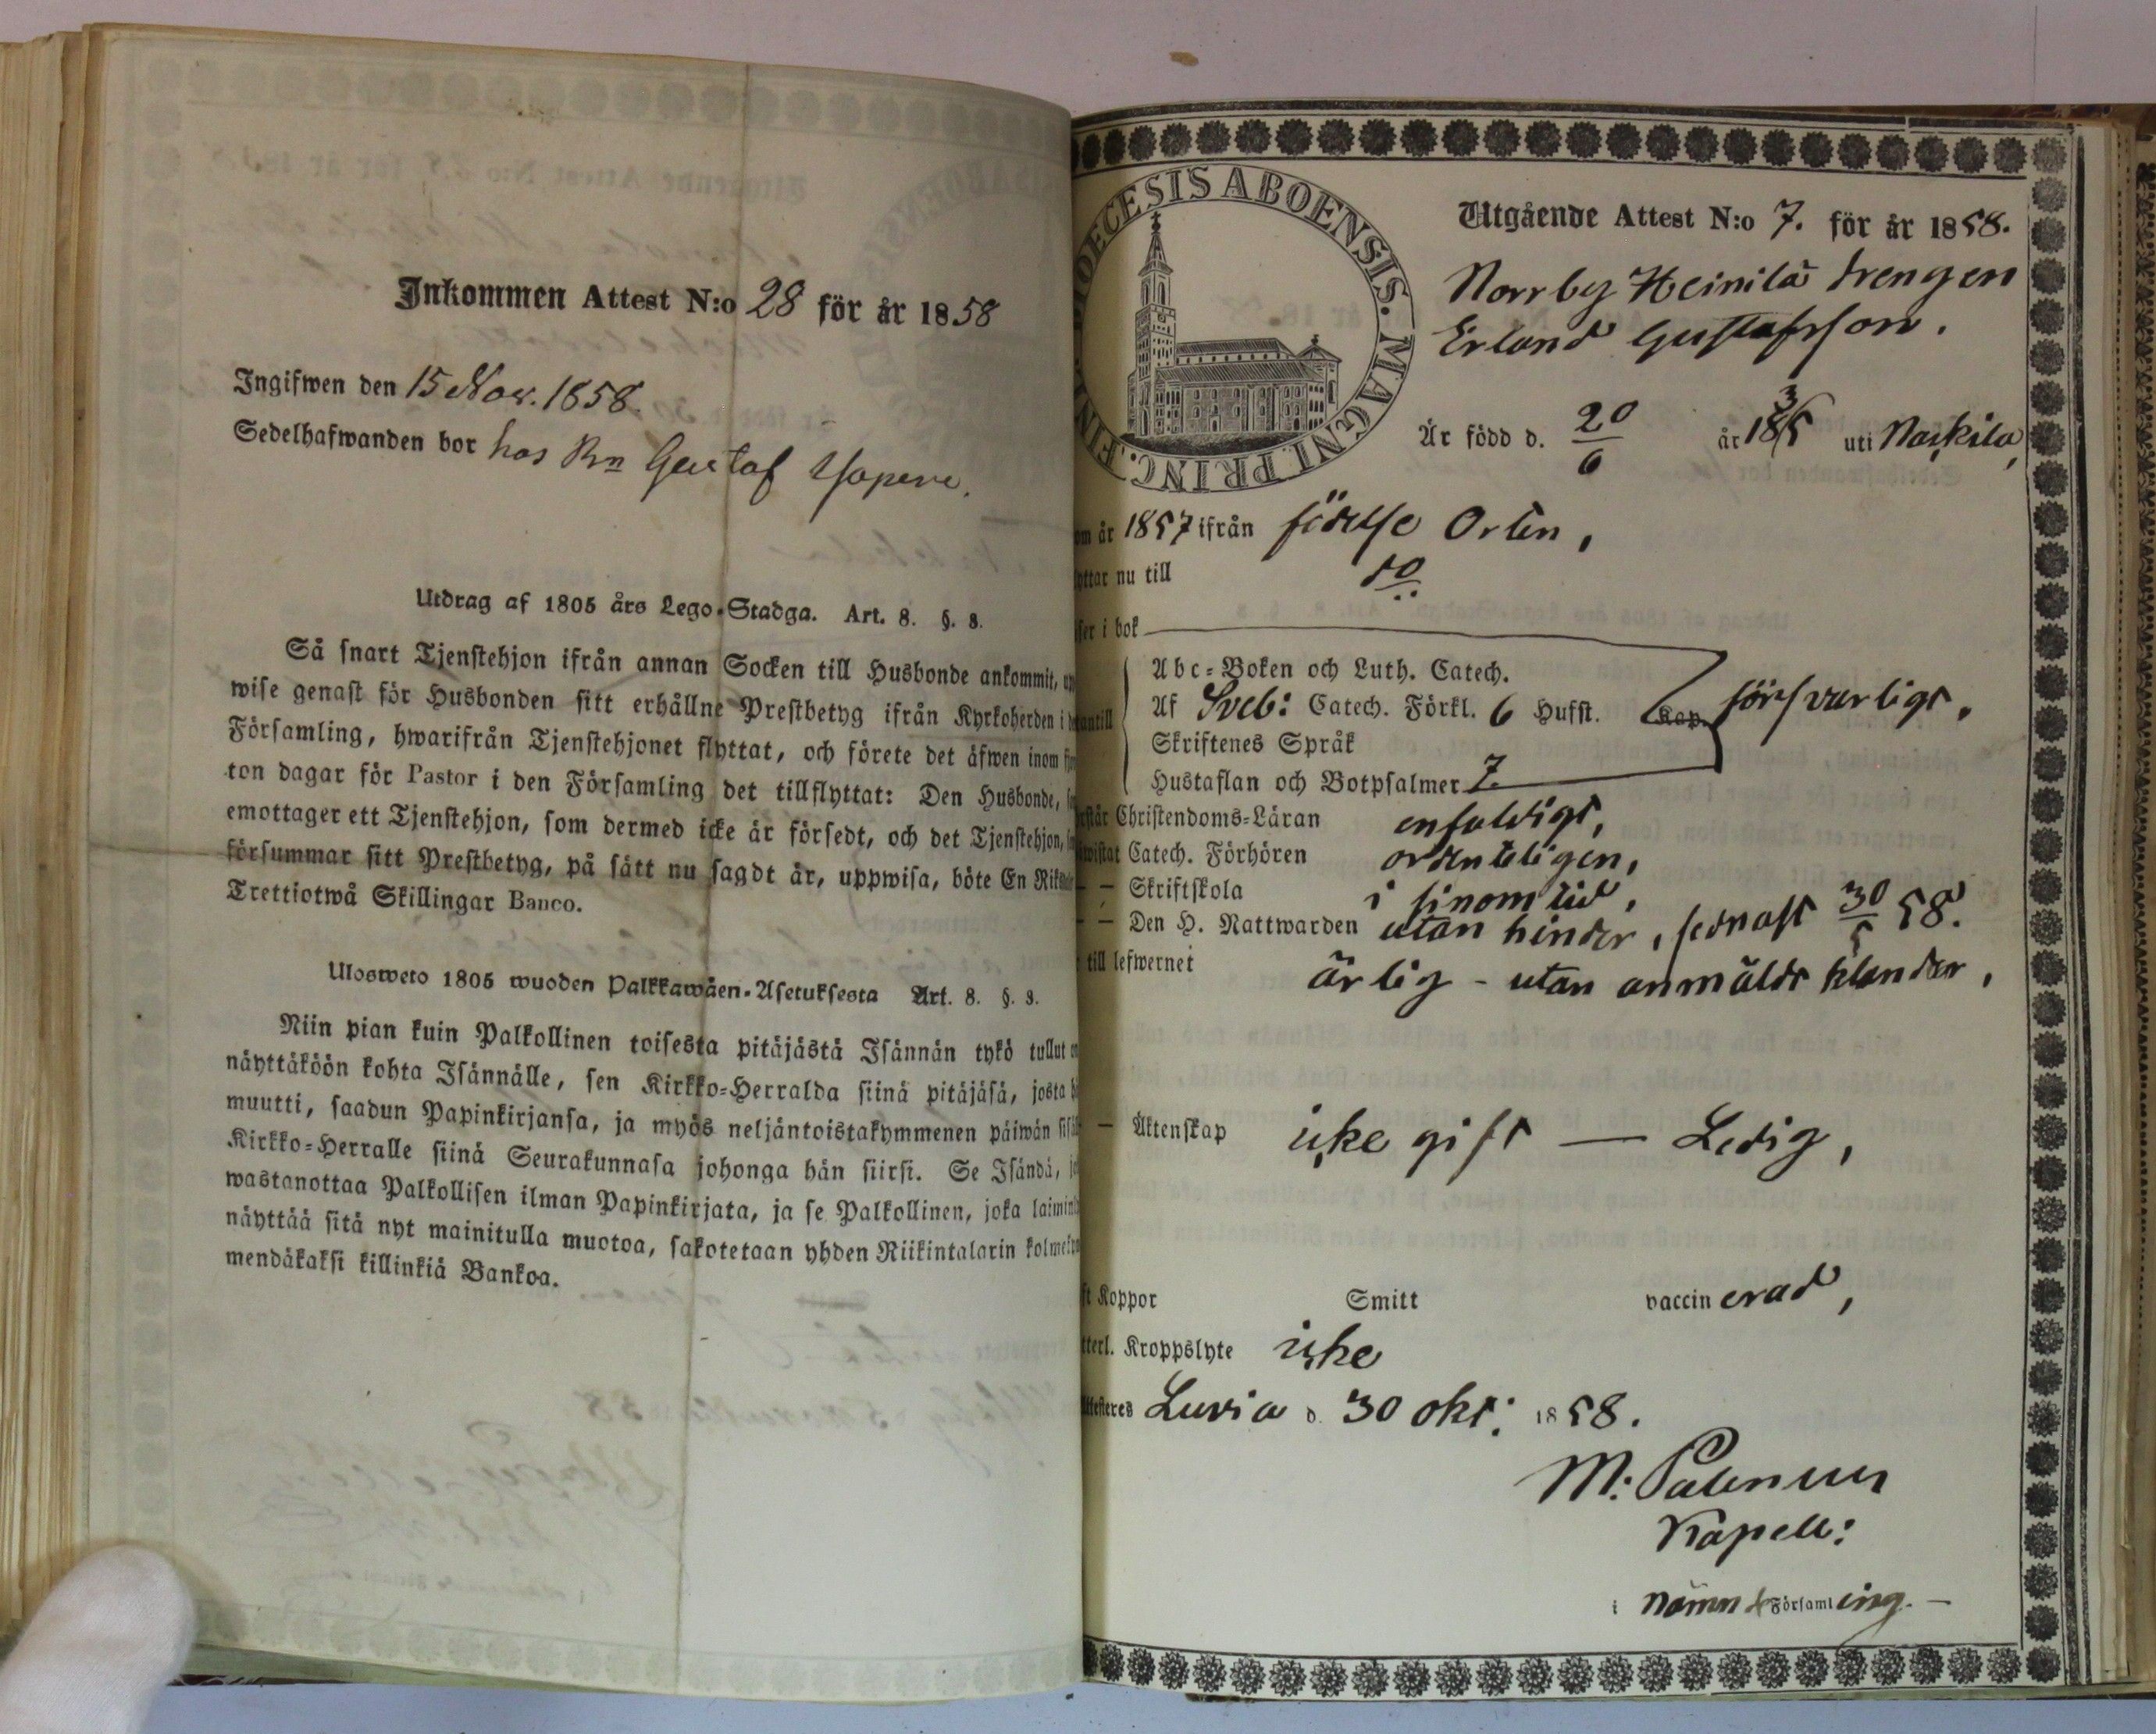 Inkommen Attest N:o 28 för år 1858
Ingifwen den 15 Nov. 1858.
Sedelhafwanden bor hos Bn Gustaf
Utdrag af 1805 års Lego-Stadga. Art. 8. §. 8.
Så snart Tjenstehjon ifrån annan Socken till Husbonde ankommit, upp
wise genast för Husbonden sitt erhållne Prestbetyg ifrån Kyrkoherden i
Församling, hwarifrån Tjenstehjonet flyttat, och förete det äfwen inom
ton dagar för Pastor i den Församling det tillflyttat: Den Husbonde,
emottager ett Tjenstehjon, som dermed icke är försedt, och det Tjenstehjon,
försummar sitt Prestbetyg, på sätt nu sagdt är, uppwisa, böte En Riks
Trettiotwå Skillingar Banco.
Ulosweto 1805 wuoden Palkkawäen-Asetuksesta Art. 8. §. 8.
Niin pian kuin Palkollinen toisesta pitäjästä Isännän tykö tullut on
näyttäköön kohta Isännälle, sen Kirkko-Herralda siinä pitäjäsä, josta hä
muutti, saadun Papinkirjansa, ja myös neljäntoistakymmenen päiwän sisä
Kirkko-Herralle siinä Seurakunnasa johonga hän siirsi. Se Isändä, jo
wastanottaa Palkollisen ilman Papinkirjata, ja se Palkollinen, joka laimin
näyttää sitä nyt mainitulla muotoa, sakotetaan yhden Riikintalarin kolmeky
mendäkaksi killinkiä Bankoa.
DIOECESIS ABOENSIS. MAGNI PRINC. FIN
Utgående Attest N:o 7. för år 1858.
Norrby Heinilä drengen
Erland Gustafsson.
Är född d. 20/6 år 1835 uti Naskila,
om år 1857 ifrån födelse Orten,
yttar nu till do.
ser i bok
Abc-Boken och Luth. Catech.
antill Af Sveb: Catech. Förkl. 6 Hufst. Kap. försvarligt,
Skriftenes Språk
Hustaflan och Botpsalmer 7
rstår Christendoms-Läran enfaldigt,
wistat Catech. Förhören ordenteligen,
— — Skriftskola i sinom tid,
— — Den H. Nattwarden utan hinder, sednast 30/5 58.
till lefwernet ärlig - utan anmäldt klander,
— Äktenskap icke gift — Ledig,
ft Koppor Smitt vaccinerad,
tterl. Kroppslyte icke
Attesteres Luvia d. 30 Okt: 1858.
M: Palenius
Kapell:
i nämnd Församling. —